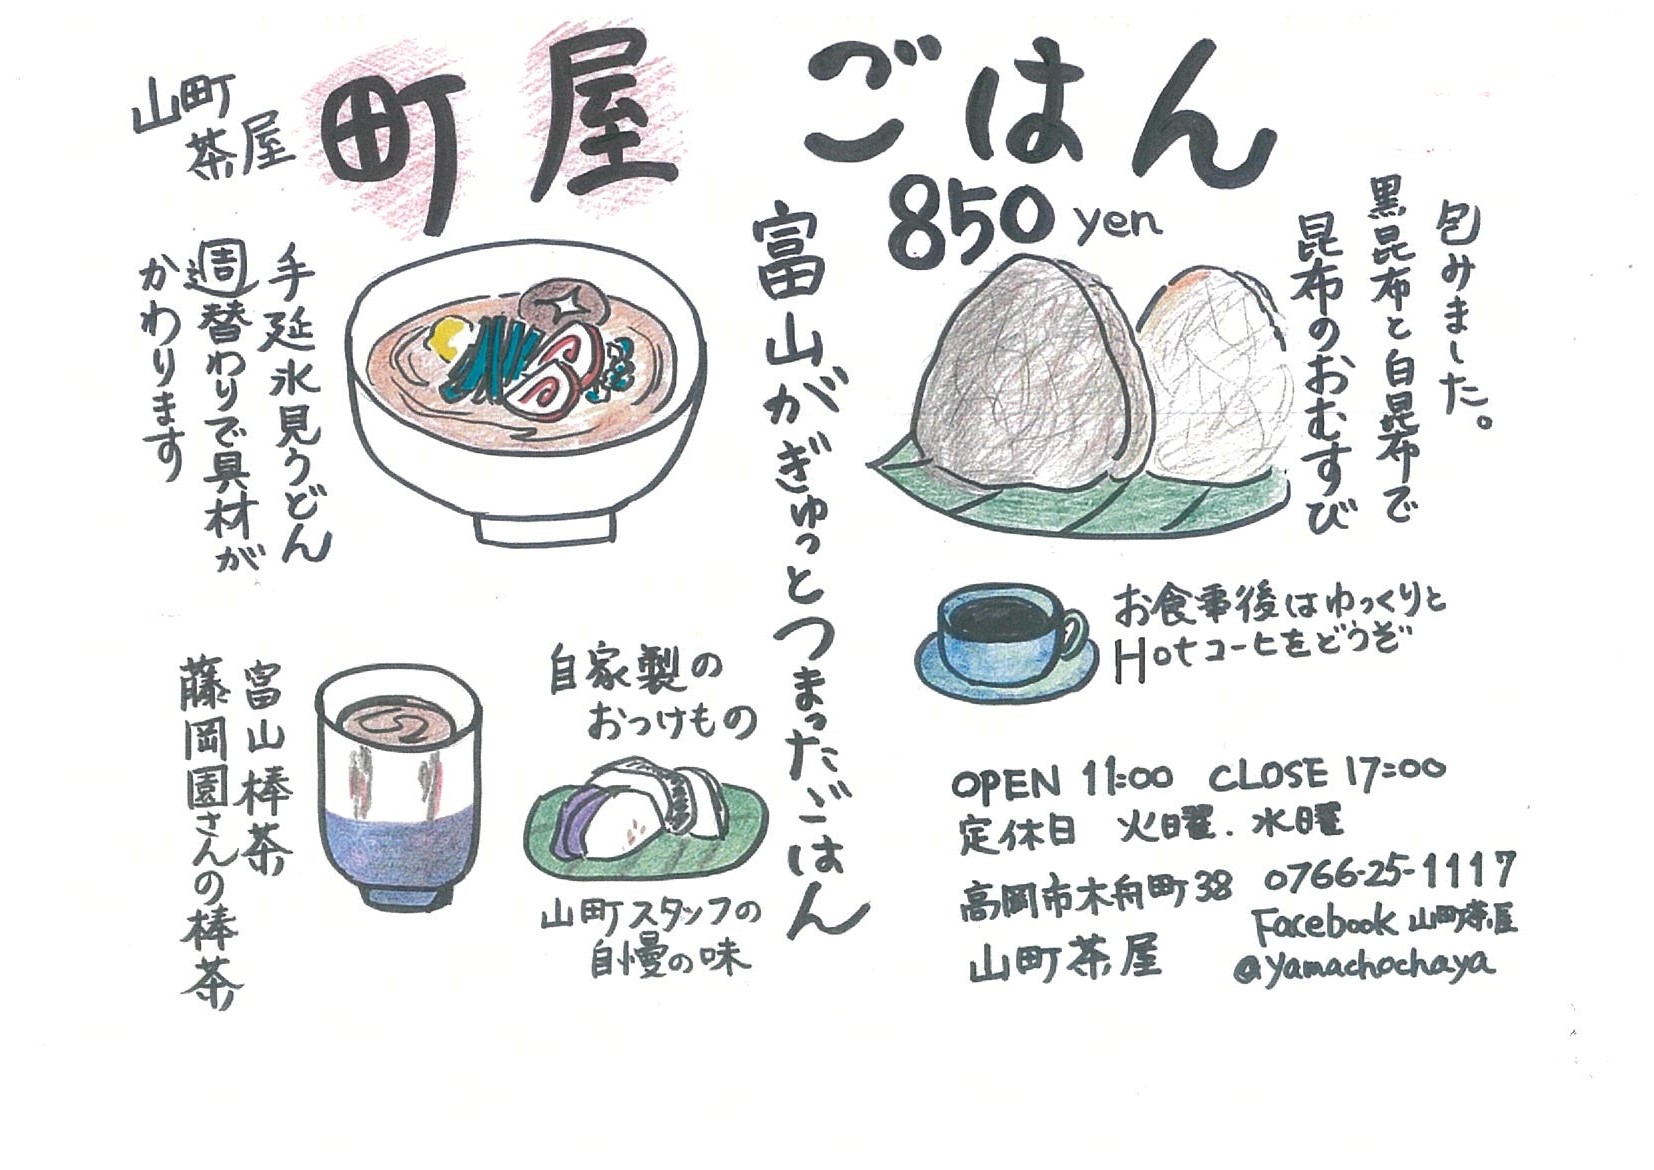 山町
茶屋
町屋ごはん
850 yen
富山がぎゅっとつまったごはん
手延氷見うどん
週替わりで具材が
かわります
昆布のおむすび
黒昆布と白昆布で
包みました。
お食事後はゆっくりと
Hotコーヒをどうぞ
富山棒茶
藤岡園さんの棒茶
自家製の
おつけもの
山町スタッフの
自慢の味
OPEN 11:00 CLOSE 17:00
定休日 火曜.水曜
高岡市木舟町38 0766-25-1117
山町茶屋
Facebook 山町茶屋
@yamachochaya